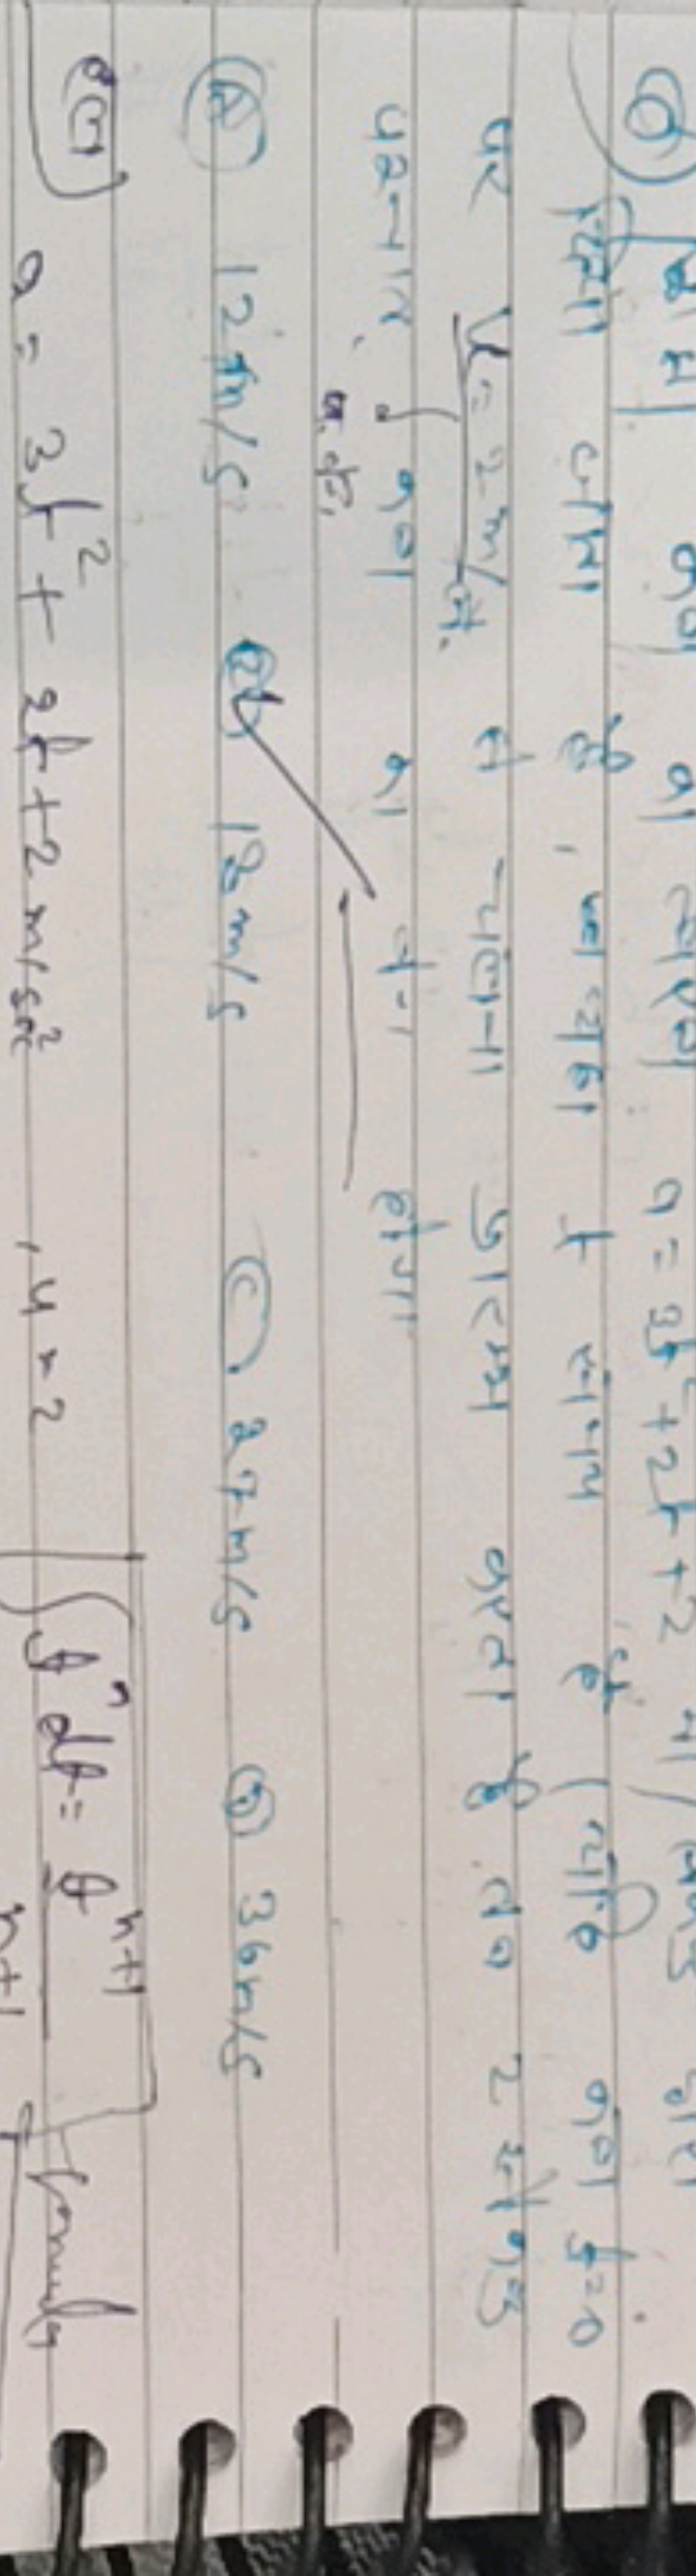 किसी कण का त्वरण a = 3t² + 2t + 2 मी/सेकण्ड² द्वारा
दिया जाता है, जहाँ t समय है। यदि कण t=0
पर u = 2 m/से. से चलना प्रारम्भ करता है तब 2 सेकण्ड
पश्चात कण का वेग होगा
(A) 12 m/s (B) 18 m/s (C) 27 m/s (D) 36 m/s
हल a = 3t² + 2t + 2 m/sec² , u = 2 ∫tⁿ dt = tⁿ⁺¹/n+1 formula